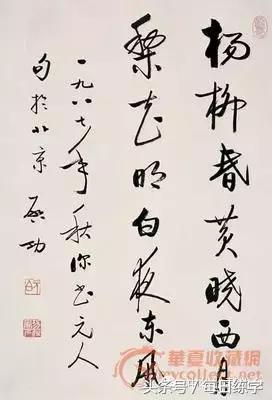 杨柳昏黄晓西月
梨花明白夜东风
一九八七年秋深书元人
句於北京 启功
华夏收藏网
头条号 / 每日练字